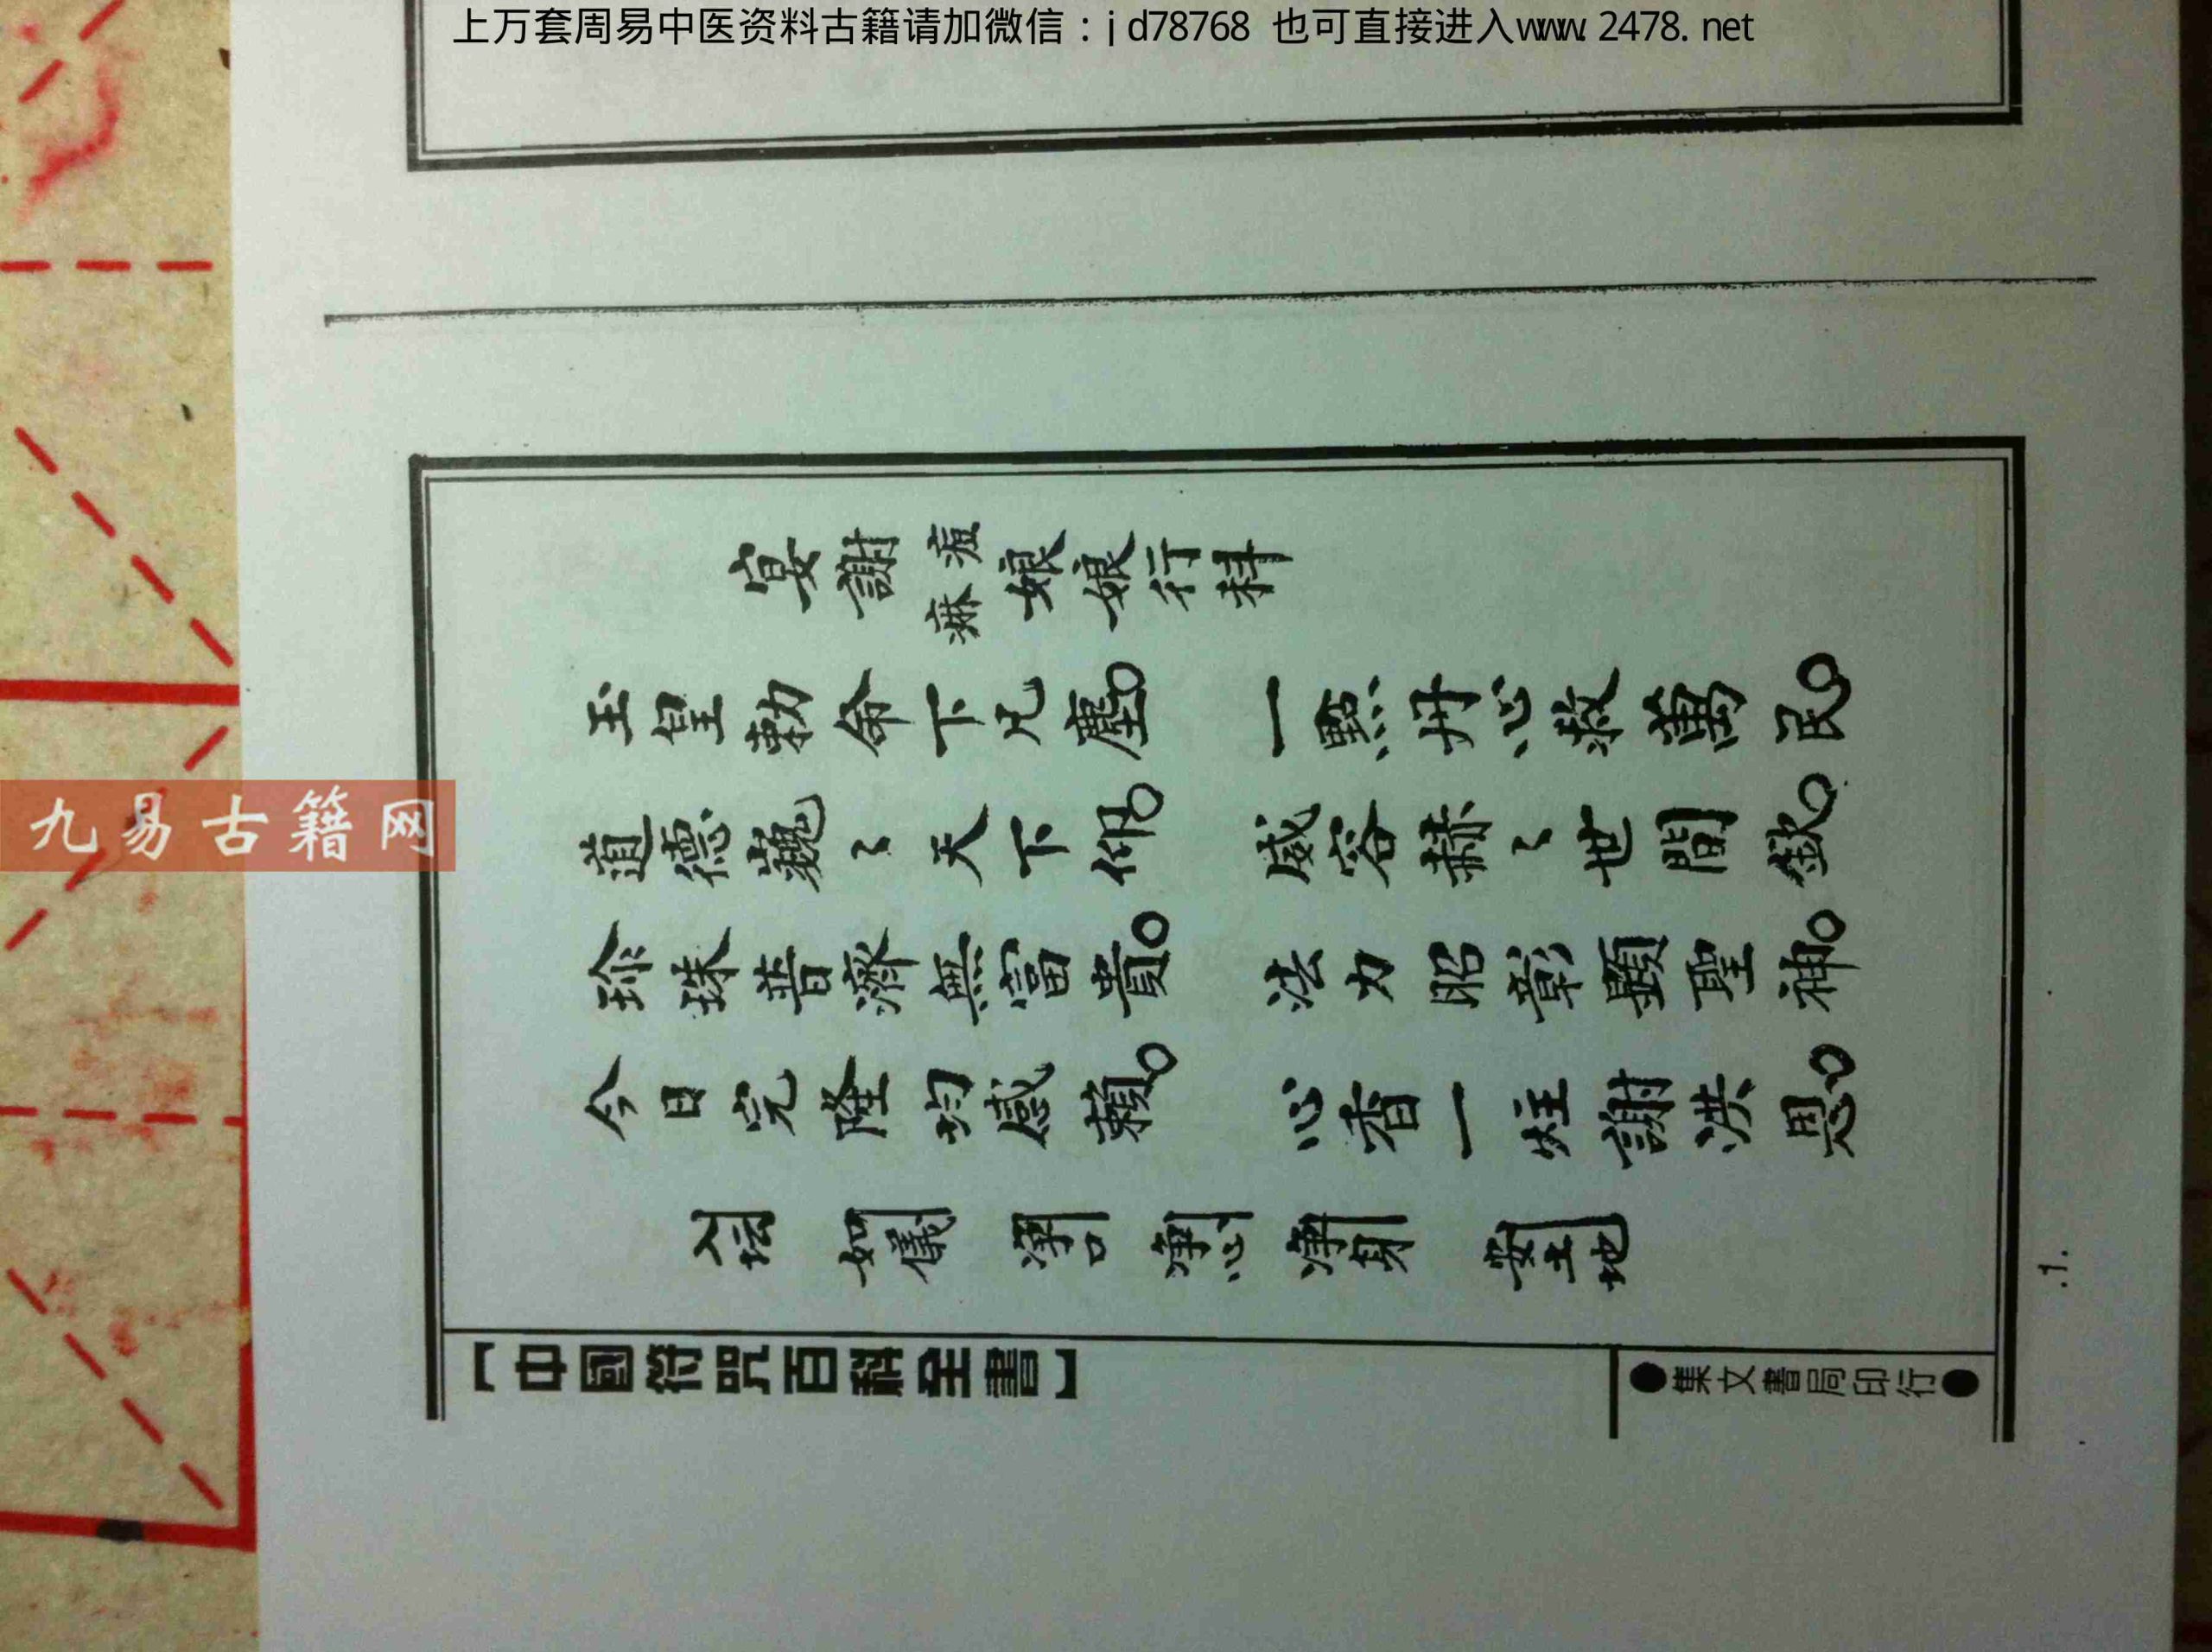 上万套周易中医资料古籍请加微信：jd78768 也可直接进入www.2478.net
九易古籍网
宴謝痳痘娘娘行科
玉皇勅命下凡塵。一點丹心救萬民。
道德巍々天下仰。威容赫々世間欽。
珍珠普濟無富貴。法力昭彰顯聖神。
今日完隆均感賴。心香一炷謝洪恩。
入坛 如儀 凈口 凈心 凈身 安土地
【中國符咒百科全書】
●集文書局印行●
.1.